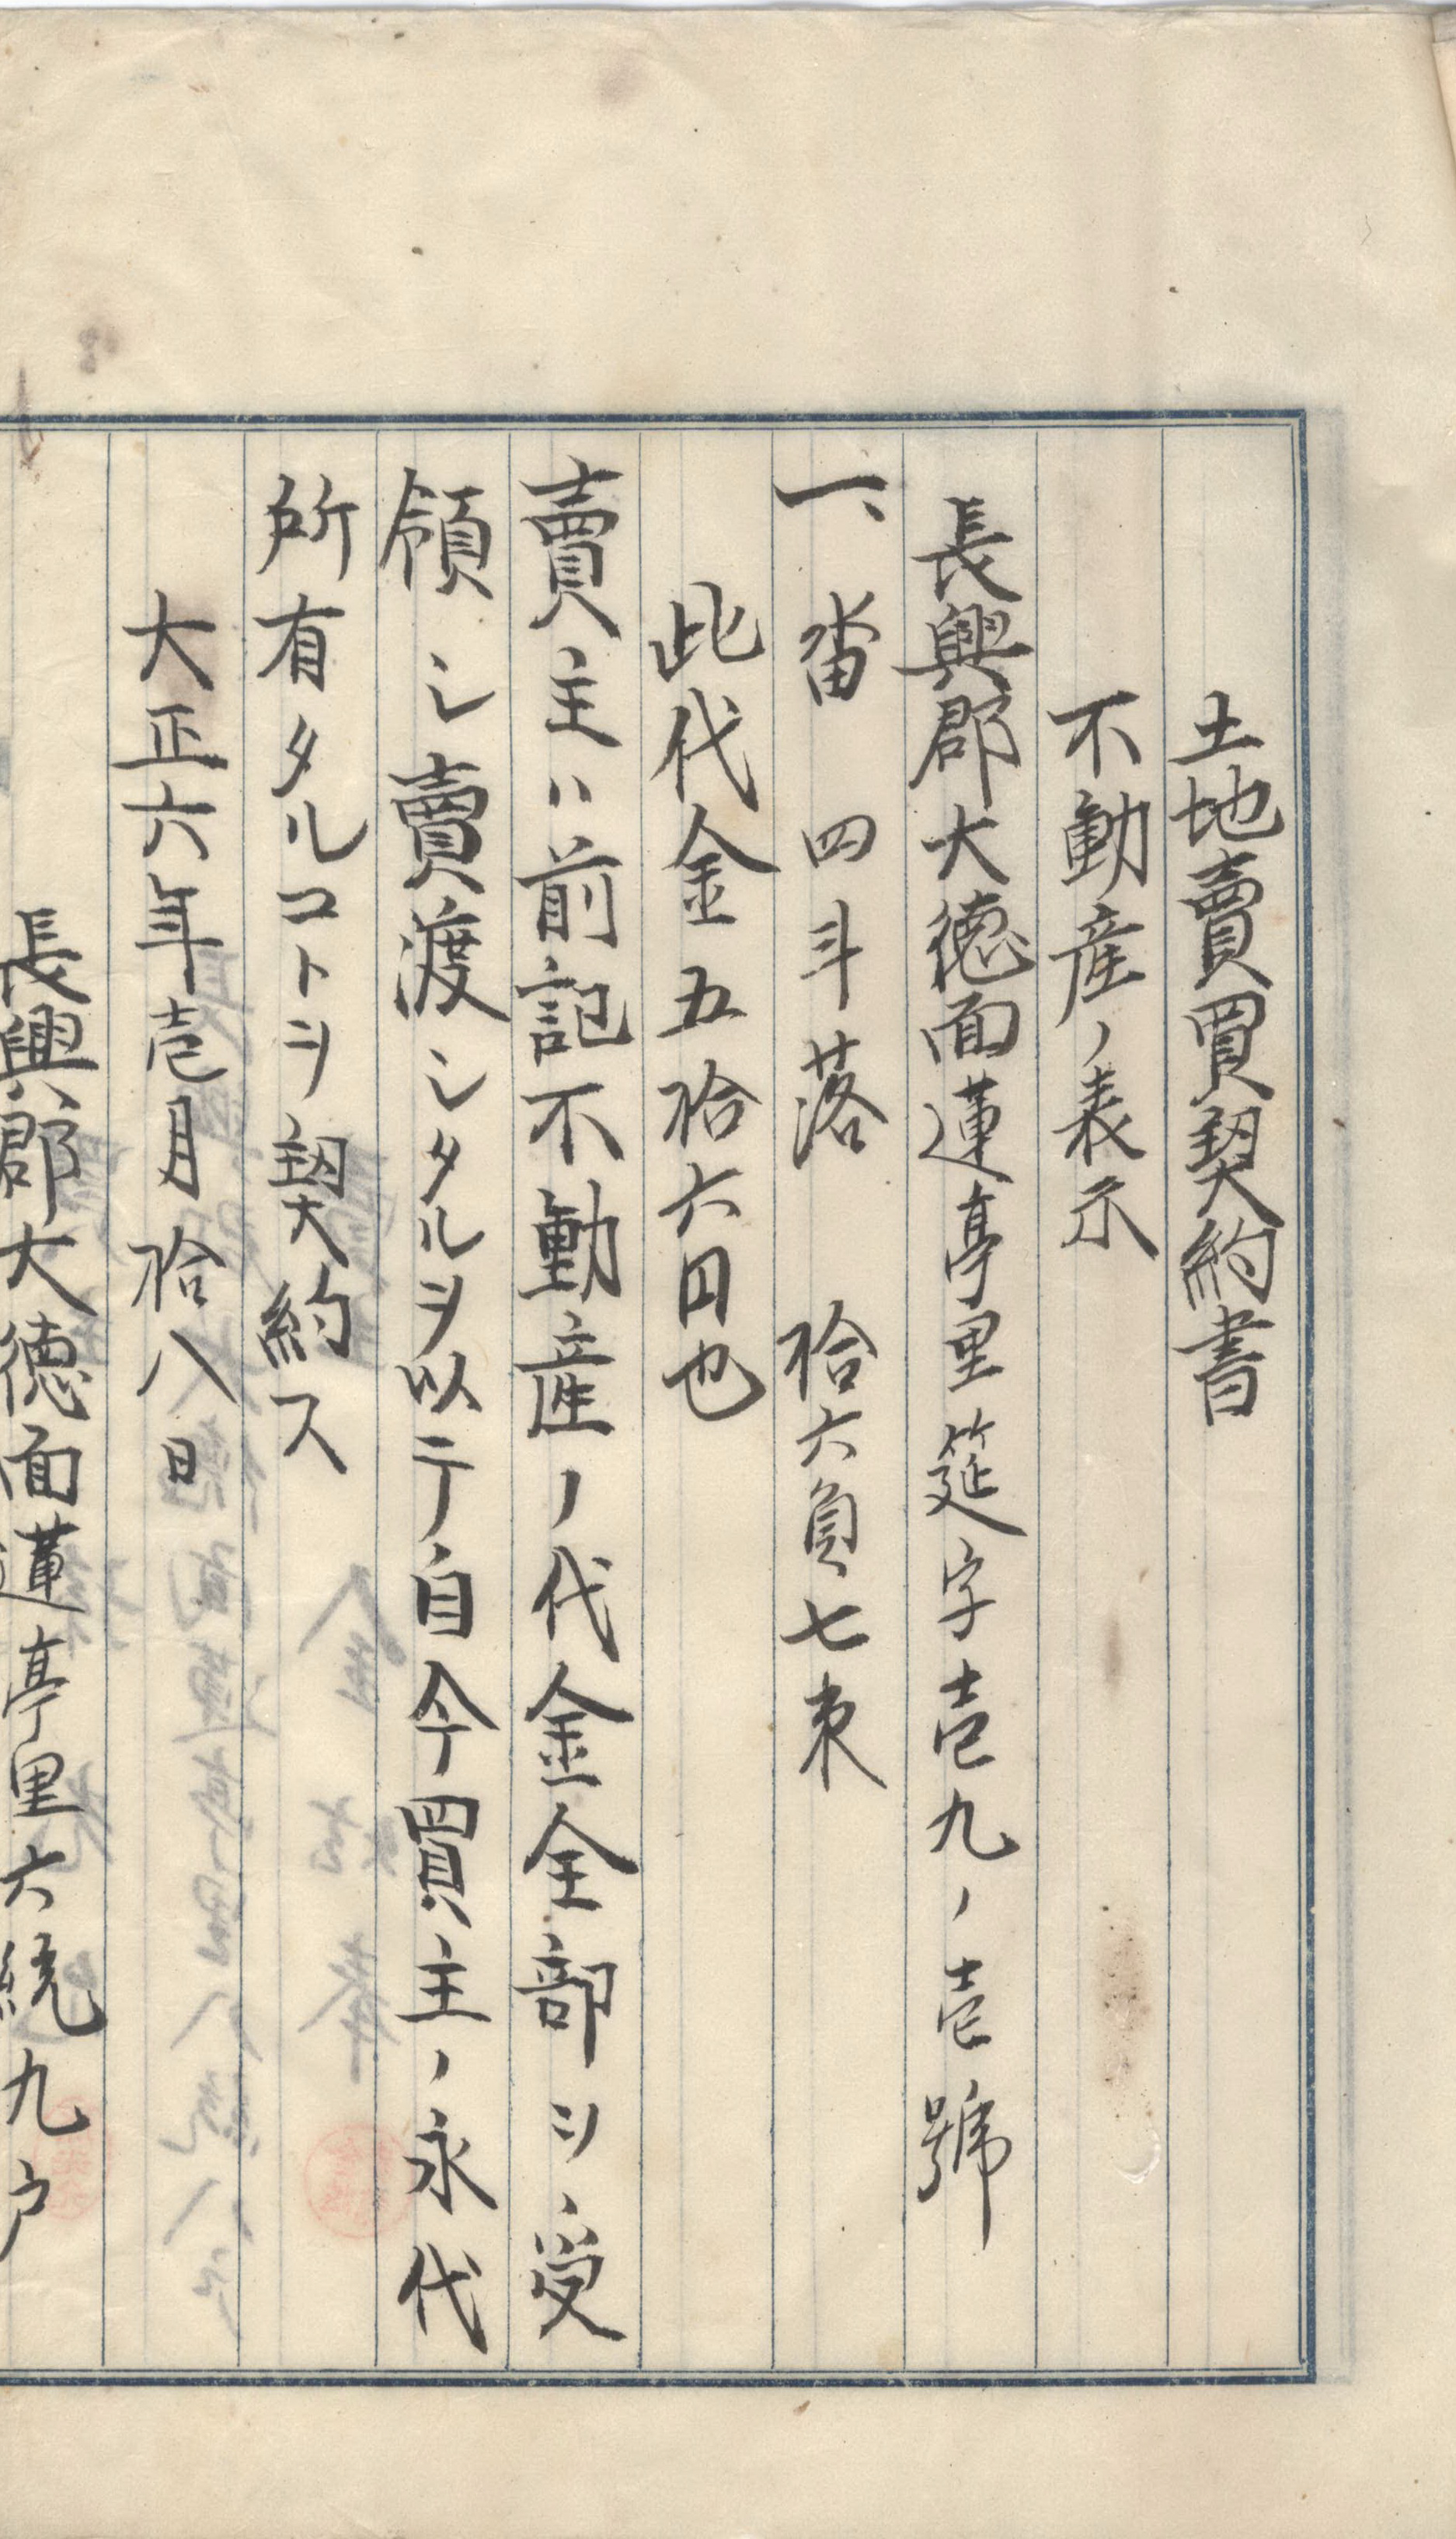 土地賣買契約書
不動産ノ表示
長興郡大德面蓮亭里筵字壱九ノ壱號
一、畓 四斗落 拾六負七束
此代金五拾六円也
賣主ハ前記不動産ノ代金全部ヲ、受
領シ賣渡シタルヲ以テ自今買主ノ永代
所有タルコトヲ契約ス
大正六年壱月拾八日
長興郡大德面蓮亭里六統九戸